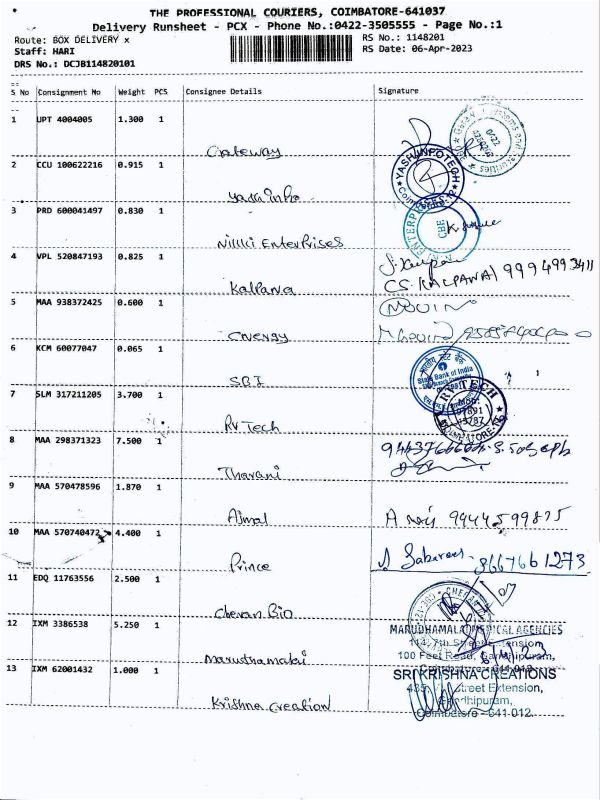 THE PROFESSIONAL COURIERS, COIMBATORE-641037
Delivery Runsheet - PCX - Phone No.:0422-3505555 - Page No.:1
Route: BOX DELIVERY x
RS No.: 1148201
Staff: HARI
RS Date: 06-Apr-2023
DRS No.: DCJB114820101
S No Consignment No Weight PCS Consignee Details Signature
1 UPT 4004005 1.300 1
Gateway
2 CCU 100622216 0.915 1
YASH INFOTECH
Yash info
3 PRD 600041497 0.830 1
ENTERPRISES
CBE
Nikki Enterprises
4 VPL 520847193 0.825 1
Kalpana
CS. KALPANA) 9994993411
5 MAA 938372425 0.600 1
Cnergy
6 KCM 60077047 0.065 1
State Bank of India
SBI
7 SLM 317211205 3.700 1
RV TECH
COIMBATORE
RV Tech
8 MAA 298371323 7.500 1
Tharani
9 MAA 570478596 1.870 1
Ajmal
10 MAA 570740472 4.400 1
8667661273
Prince
11 EDQ 11763556 2.500 1
Chevan Bio
12 IXM 3386538 5.250 1
MARUDHAMALAI MEDICAL AGENCIES
114, 7th Street Extension,
100 Feet Road, Gandhipuram,
Coimbatore - 641 012.
Marudhamalai
13 IXM 62001432 1.000 1
SRI KRISHNA CREATIONS
Street Extension,
Gandhipuram,
Coimbatore - 641 012.
Krishna Creation